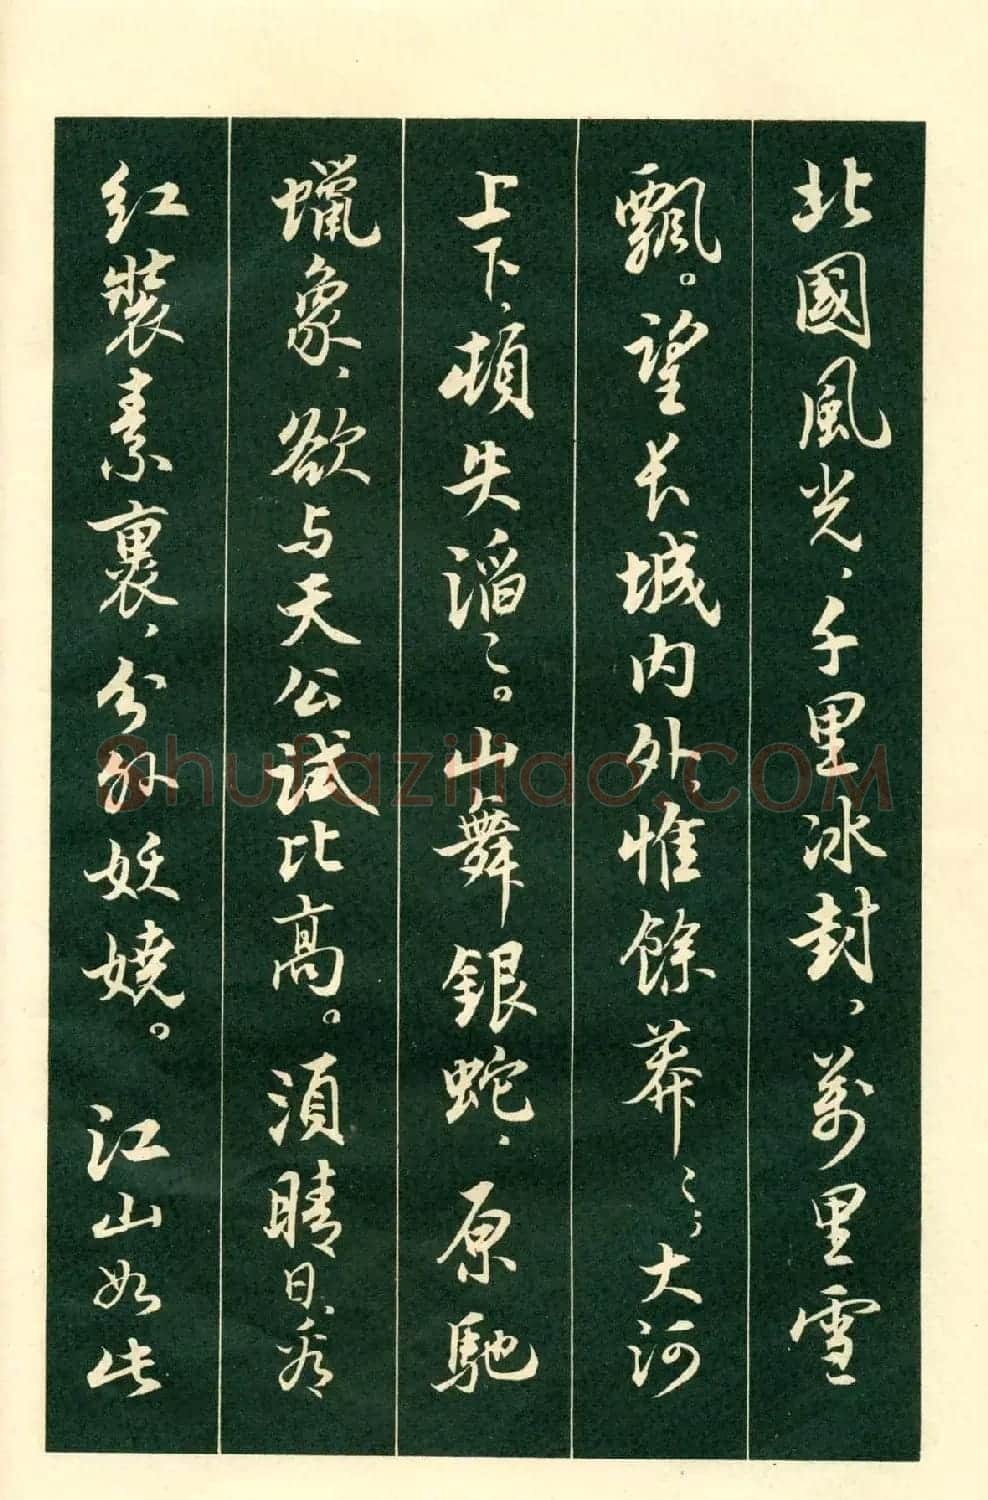 北國風光，千里冰封，萬里雪
飄。望长城内外，惟餘莽〻；大河
上下，頓失滔〻。山舞銀蛇，原馳
蠟象，欲与天公試比高。須晴日，看
红裝素裹，分外妖嬈。 江山如此
Shufaziliao.COM